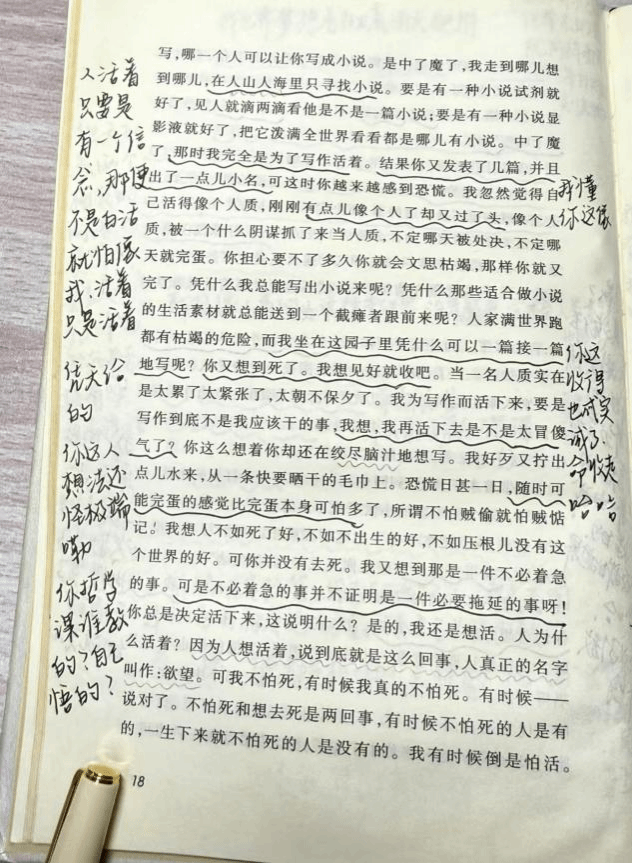 写，哪一个人可以让你写成小说。是中了魔了，我走到哪儿想
到哪儿，在人山人海里只寻找小说。要是有一种小说试剂就
好了，见人就滴两滴看他是不是一篇小说；要是有一种小说显
影液就好了，把它泼满全世界看看都是哪儿有小说。中了魔
了，那时我完全是为了写作活着。结果你又发表了几篇，并且
出了一点儿小名，可这时你越来越感到恐慌。我忽然觉得自
己活得像个人质，刚刚有点儿像个人了却又过了头，像个人
质，被一个什么阴谋抓了来当人质，不定哪天被处决，不定哪
天就完蛋。你担心要不了多久你就会文思枯竭，那样你就又
完了。凭什么我总能写出小说来呢？凭什么那些适合做小说
的生活素材就总能送到一个截瘫者跟前来呢？人家满世界跑
都有枯竭的危险，而我坐在这园子里凭什么可以一篇接一篇
地写呢？你又想到死了。我想见好就收吧。当一名人质实在
是太累了太紧张了，太朝不保夕了。我为写作而活下来，要是
写作到底不是我应该干的事，我想，我再活下去是不是太冒傻
气了？你这么想着你却还在绞尽脑汁地想写。我好歹又拧出
点儿水来，从一条快要晒干的毛巾上。恐慌日甚一日，随时可
能完蛋的感觉比完蛋本身可怕多了，所谓不怕贼偷就怕贼惦
记！我想人不如死了好，不如不出生的好，不如压根儿没有这
个世界的好。可你并没有去死。我又想到那是一件不必着急
的事。可是不必着急的事并不证明是一件必要拖延的事呀！
你总是决定活下来，这说明什么？是的，我还是想活。人为什
么活着？因为人想活着，说到底就是这么回事，人真正的名字
叫作：欲望。可我不怕死，有时候我真的不怕死。有时候——
说对了。不怕死和想去死是两回事，有时候不怕死的人是有
的，一生下来就不怕死的人是没有的。我有时候倒是怕活。
18
人活着
只要是
有一个信
念，那便
不是白活
就怕像
我，活着
只是活着
凭天给
的
你这人
想法还
怪极端
嘞
你哲学
课谁教
的？自己
悟的？
我懂
你这像
你这
收得
也忒实
诚了
命收走
哈哈